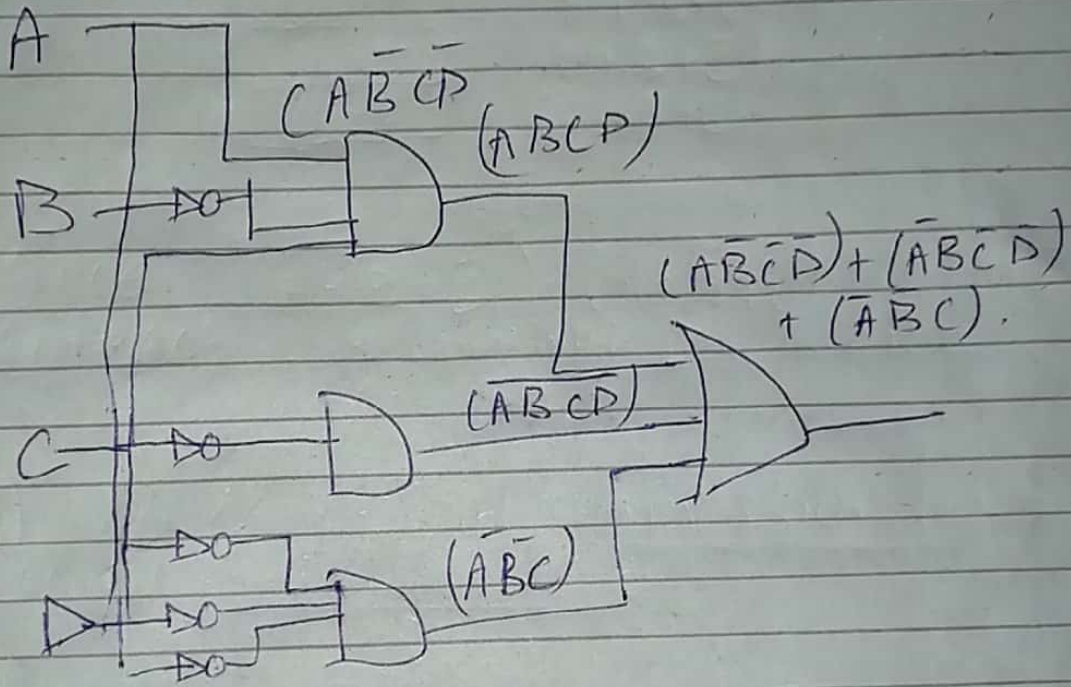 A
(AB̅C̅D̅
(ABCD)
B
(AB̅C̅D̅) + (A̅BC̅D̅)
+ (A̅B̅C).
(A̅B̅C̅D̅)
C
(A̅B̅C)
D